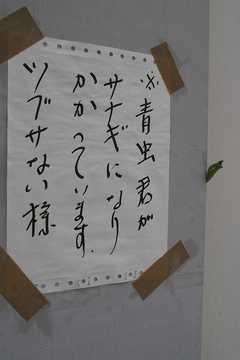 ※青虫君が
サナギになり
かかっています.
ツブサない様